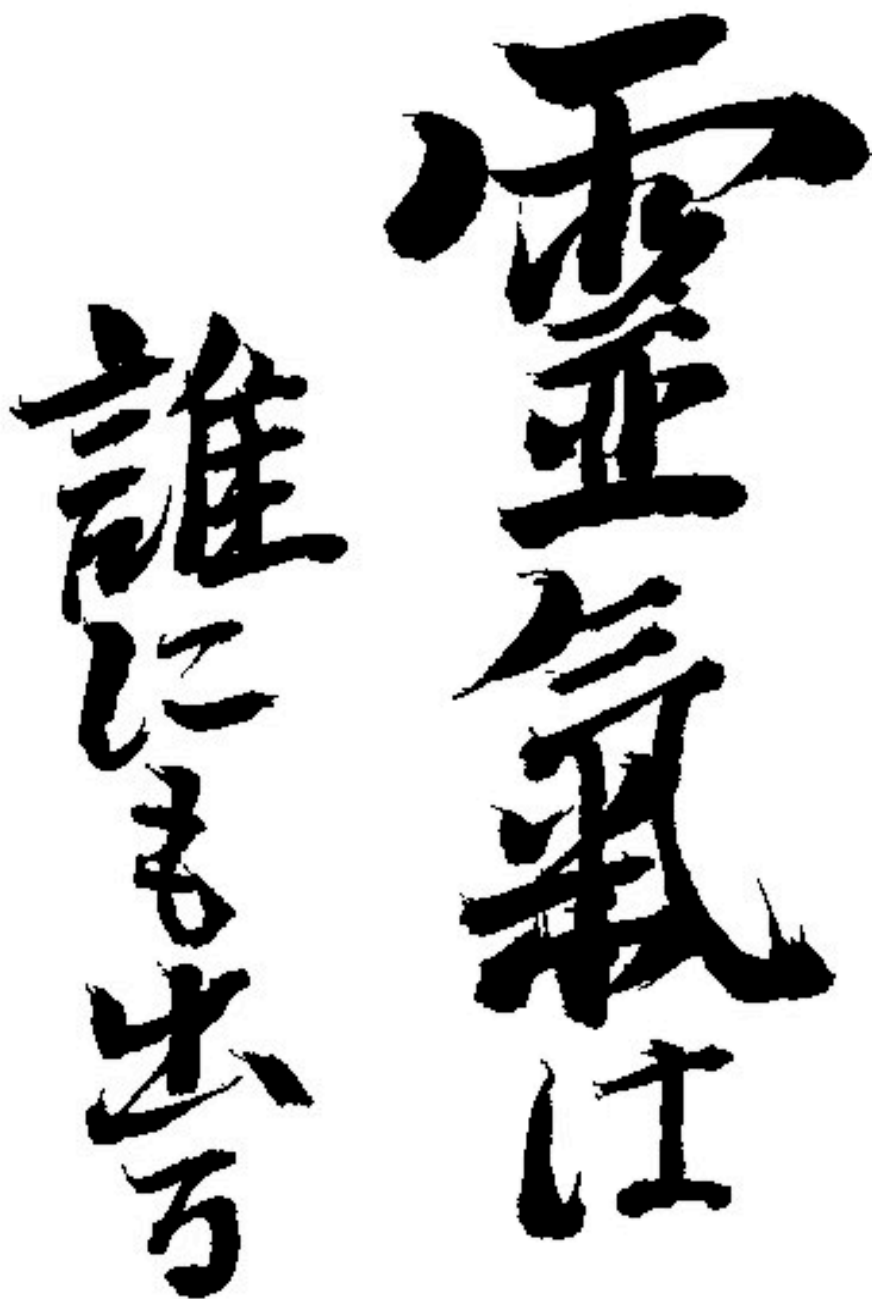 霊氣は
誰にも出る